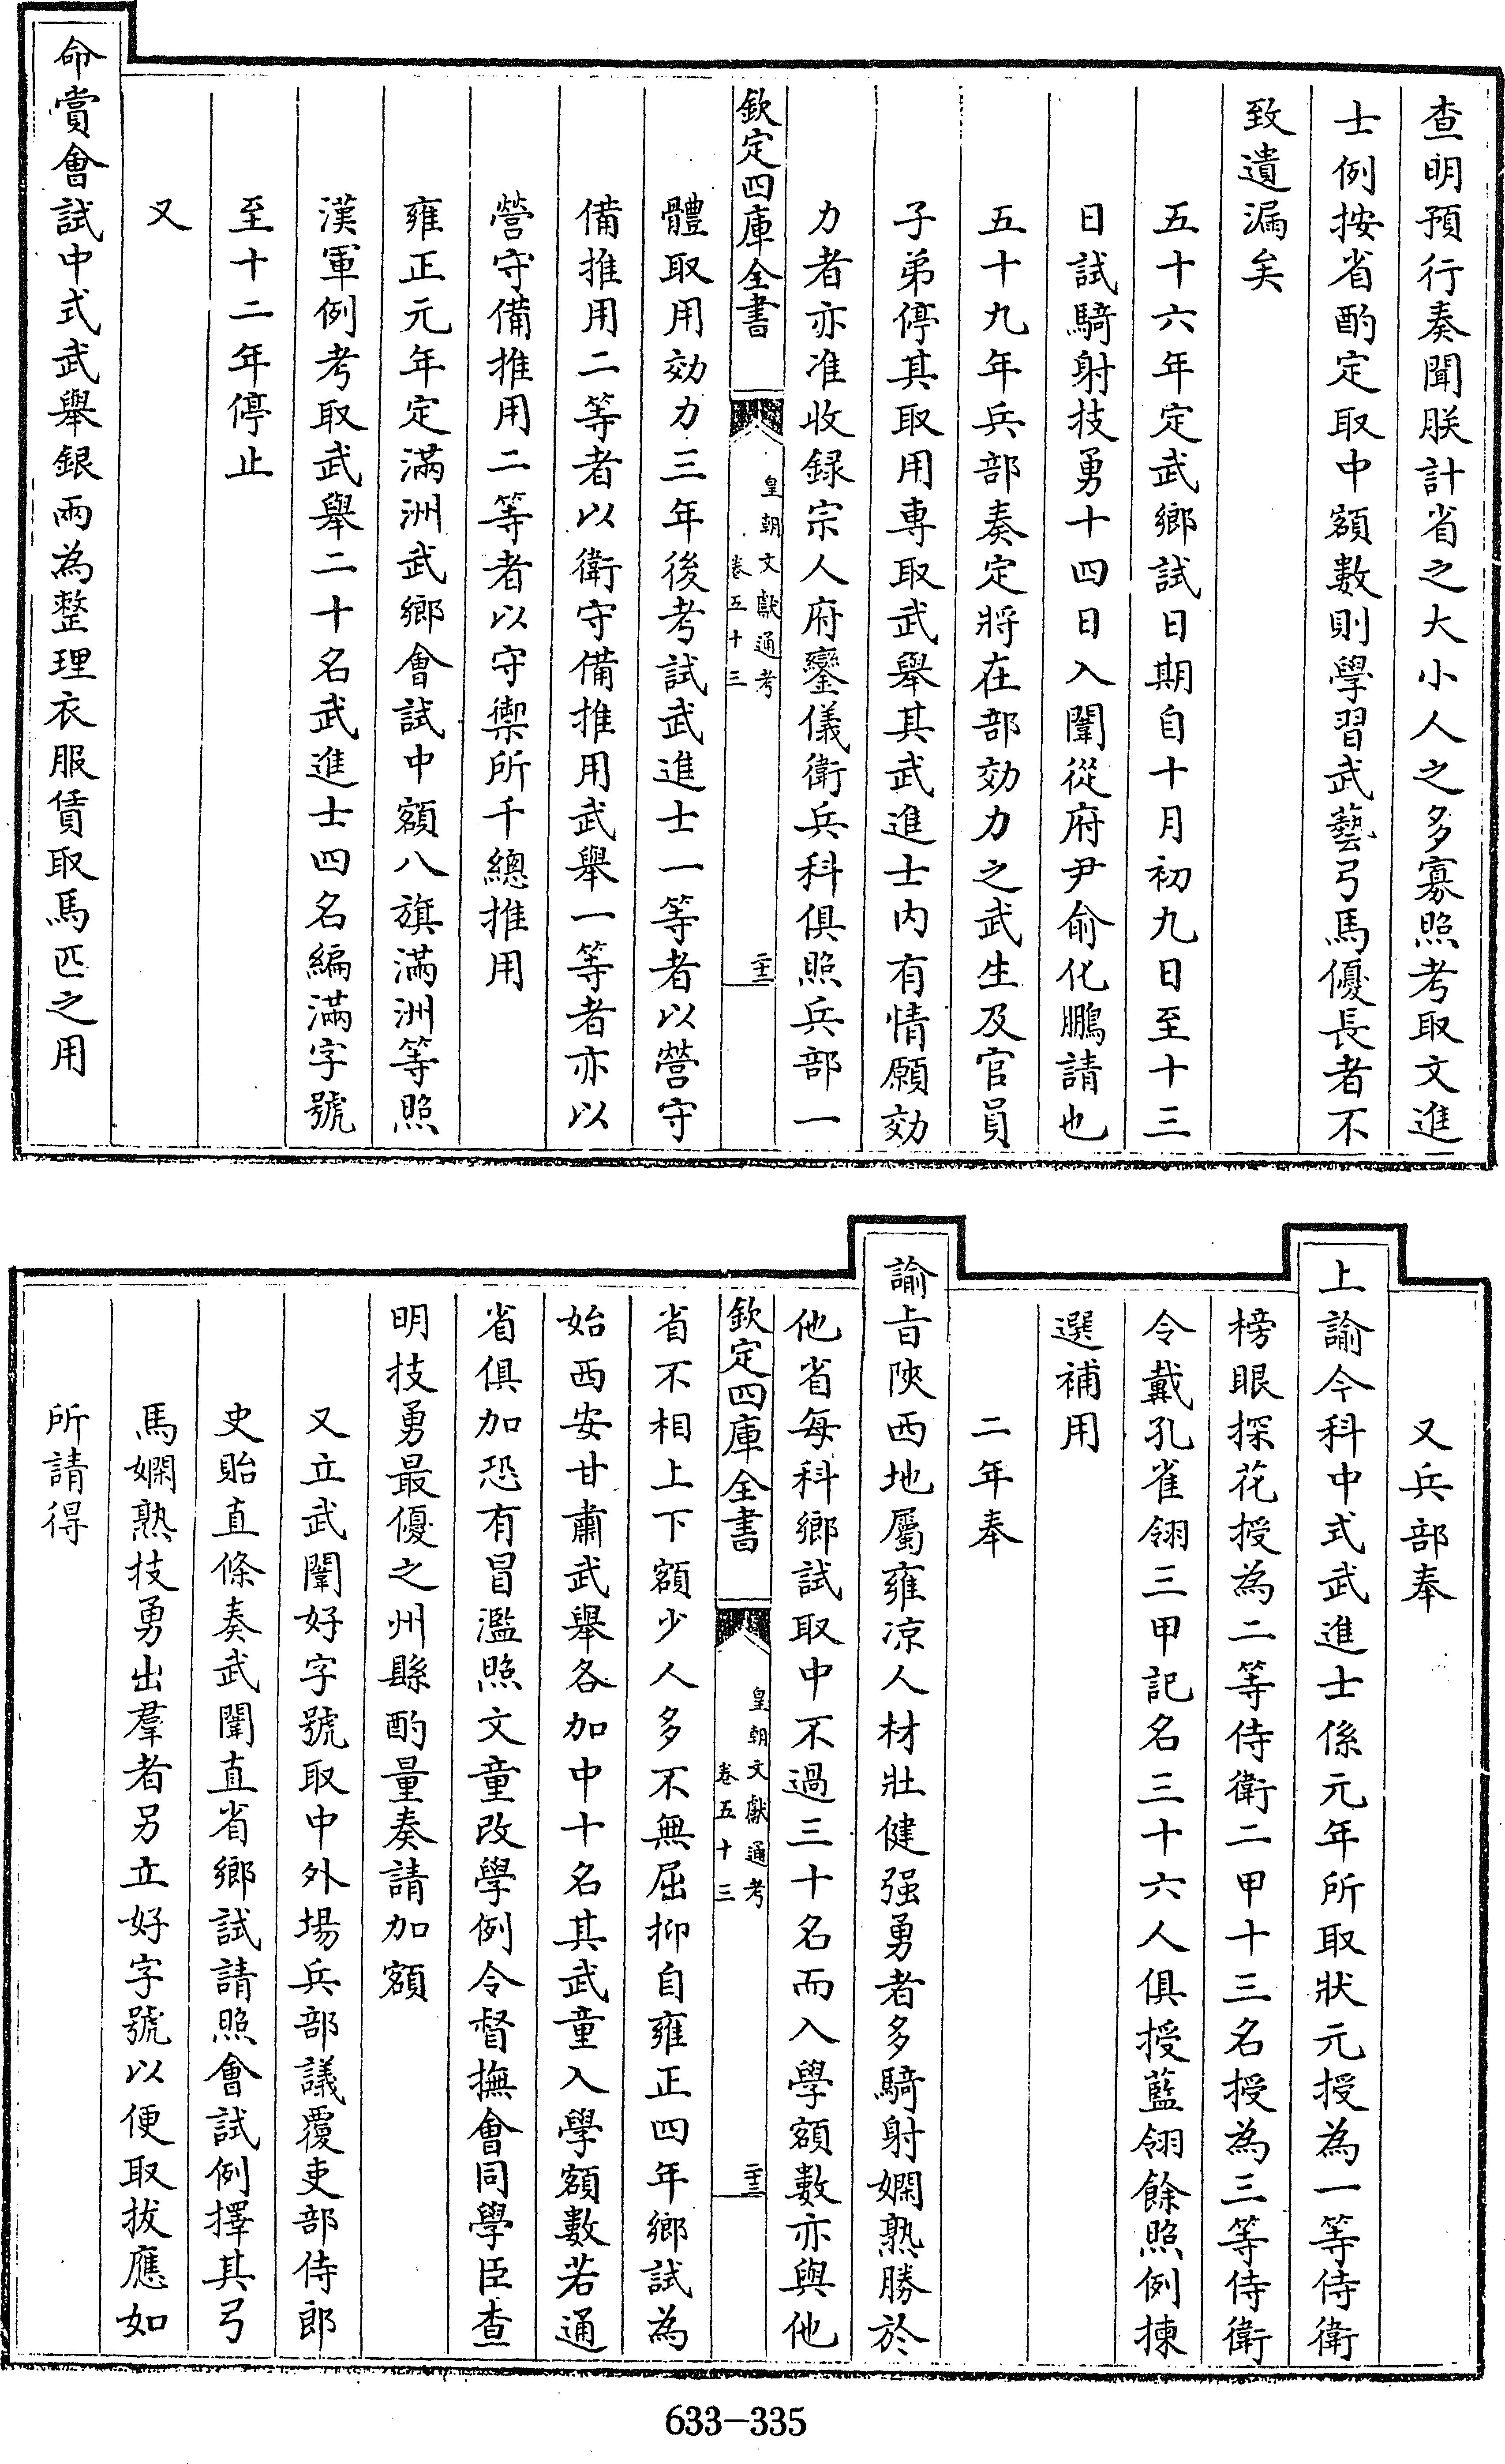 查明預行奏聞朕計省之大小人之多寡照考取文進
士例按省酌定取中額數則學習武藝弓馬優長者不
致遺漏矣
五十六年定武鄉試日期自十月初九日至十三
日試騎射技勇十四日入闈從府尹俞化鵬請也
五十九年兵部奏定將在部効力之武生及官員
子弟停其取用專取武舉其武進士内有情願効
力者亦准收録宗人府鑾儀衛兵科俱照兵部一
欽定四庫全書
皇朝文獻通考
卷五十三
二十二
體取用効力三年後考試武進士一等者以營守
備推用二等者以衛守備推用武舉一等者亦以
營守備推用二等者以守禦所千總推用
雍正元年定滿洲武鄉會試中額八旗滿洲等照
漢軍例考取武舉二十名武進士四名編滿字號
至十二年停止
又
命賞會試中式武舉銀兩為整理衣服賃取馬匹之用
又兵部奉
上諭今科中式武進士係元年所取狀元授為一等侍衛
榜眼探花授為二等侍衛二甲十三名授為三等侍衛
令戴孔雀翎三甲記名三十六人俱授藍翎餘照例揀
選補用
二年奉
諭旨陜西地屬雍凉人材壯健强勇者多騎射嫻熟勝於
他省每科鄉試取中不過三十名而入學額數亦與他
欽定四庫全書
皇朝文獻通考
卷五十三
二十三
省不相上下額少人多不無屈抑自雍正四年鄉試為
始西安甘肅武舉各加中十名其武童入學額數若通
省俱加恐有冒濫照文童改學例令督撫會同學臣查
明技勇最優之州縣酌量奏請加額
又立武闈好字號取中外場兵部議覆吏部侍郎
史貽直條奏武闈直省鄉試請照會試例擇其弓
馬嫻熟技勇出羣者另立好字號以便取拔應如
所請得
633-335